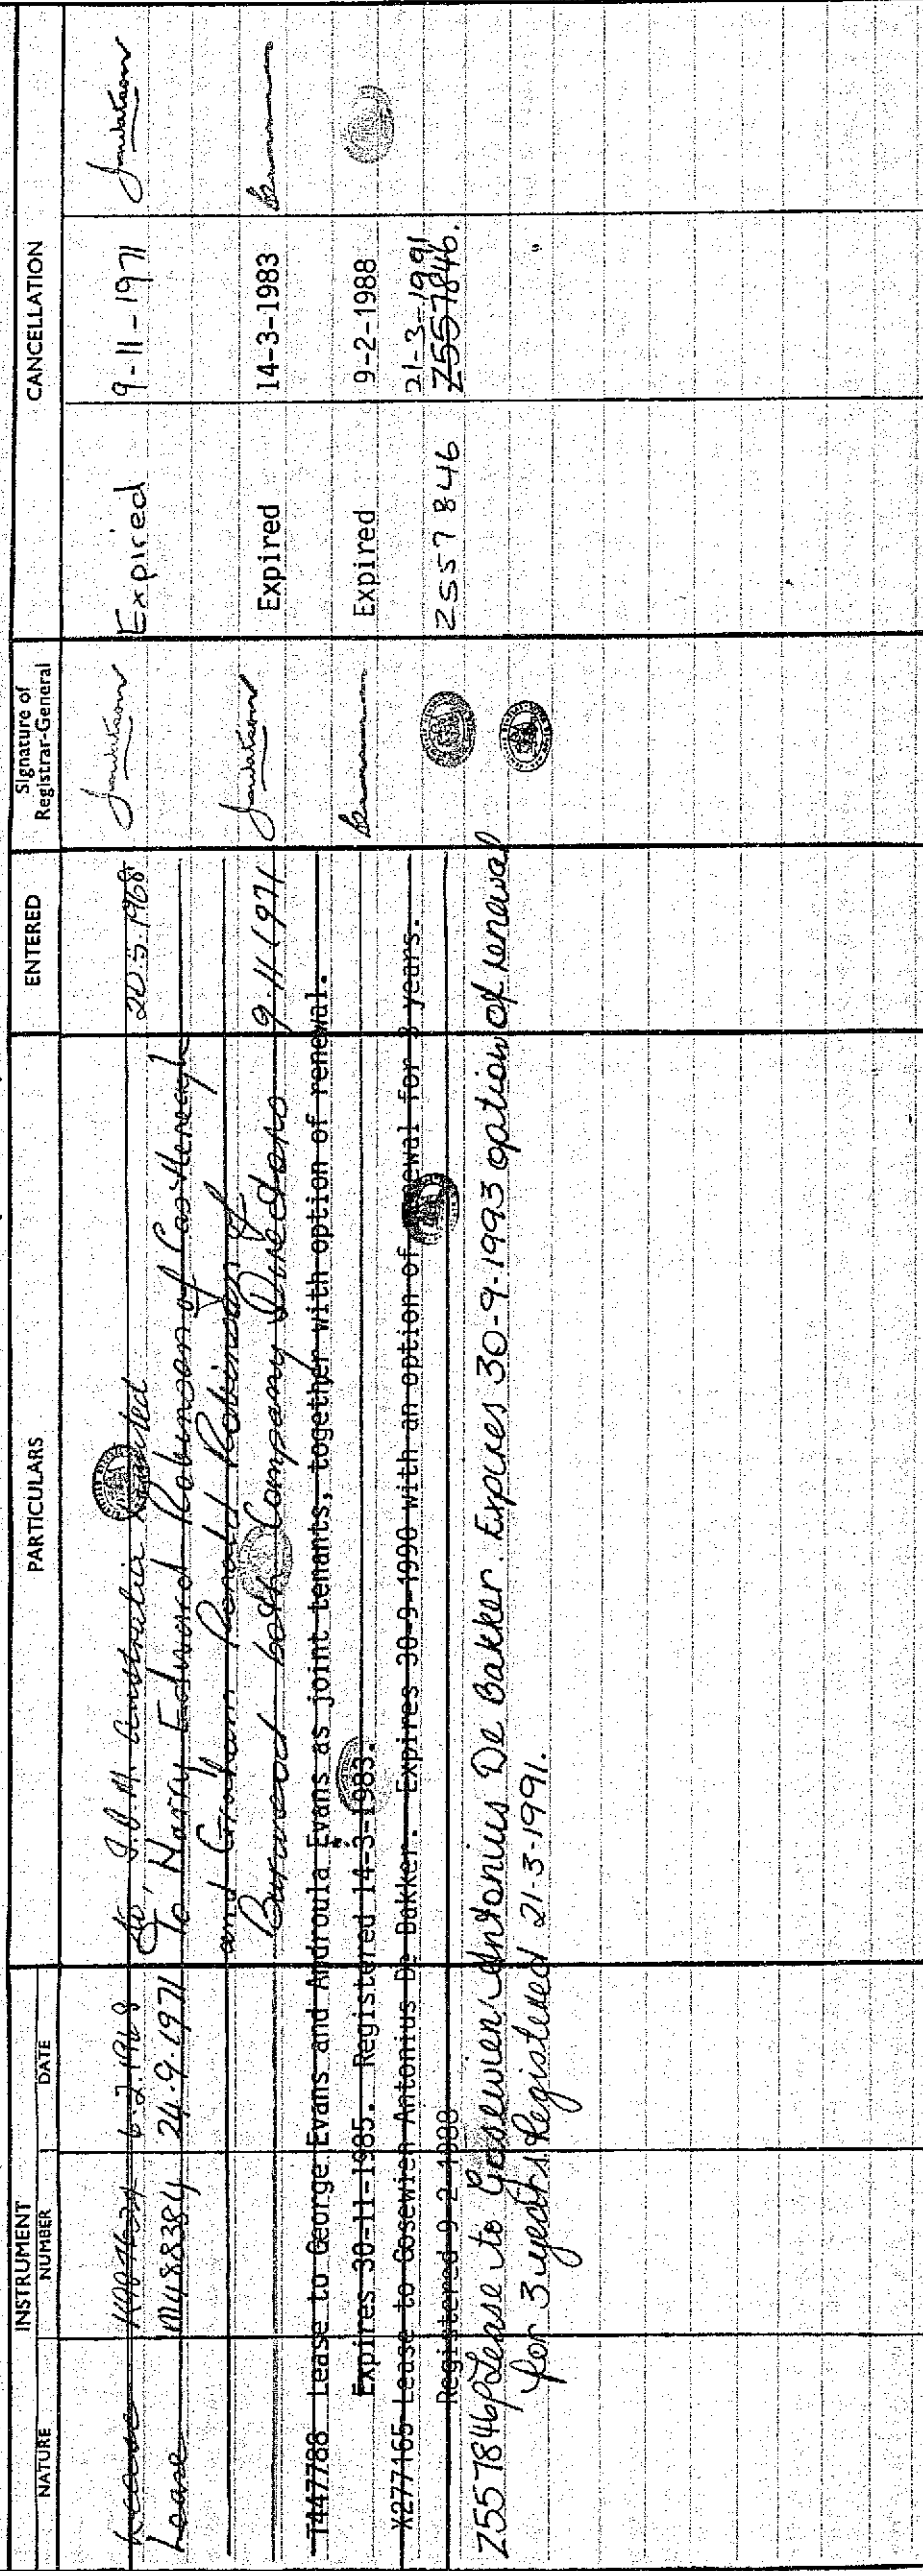 INSTRUMENT
NATURE NUMBER DATE
PARTICULARS
ENTERED
Signature of Registrar-General
CANCELLATION
Lease 6.2.1968 to, Australia Limited 20.5.1968
Lease M488384 24.9.1971 to Harry Edward Robinson of Castlereagh
and Graham Ronald Robinson of
Burwood both Company Directors 9.11.1971
Expired 9-11-1971
T447788 Lease to George Evans and Androula Evans as joint tenants, together with option of renewal.
Expires 30-11-1985. Registered 14-3-1983.
Expired 14-3-1983
X277165 Lease to Gosewien Antonius De Bakker. Expires 30-9-1990 with an option of renewal for 3 years.
Registered 9-2-1988
Expired 9-2-1988
21-3-1991
Z557846 Z557846.
Z557846P Lease to Gosewien Antonius De Bakker. Expires 30-9-1993 option of renewal
for 3 years Registered 21-3-1991.